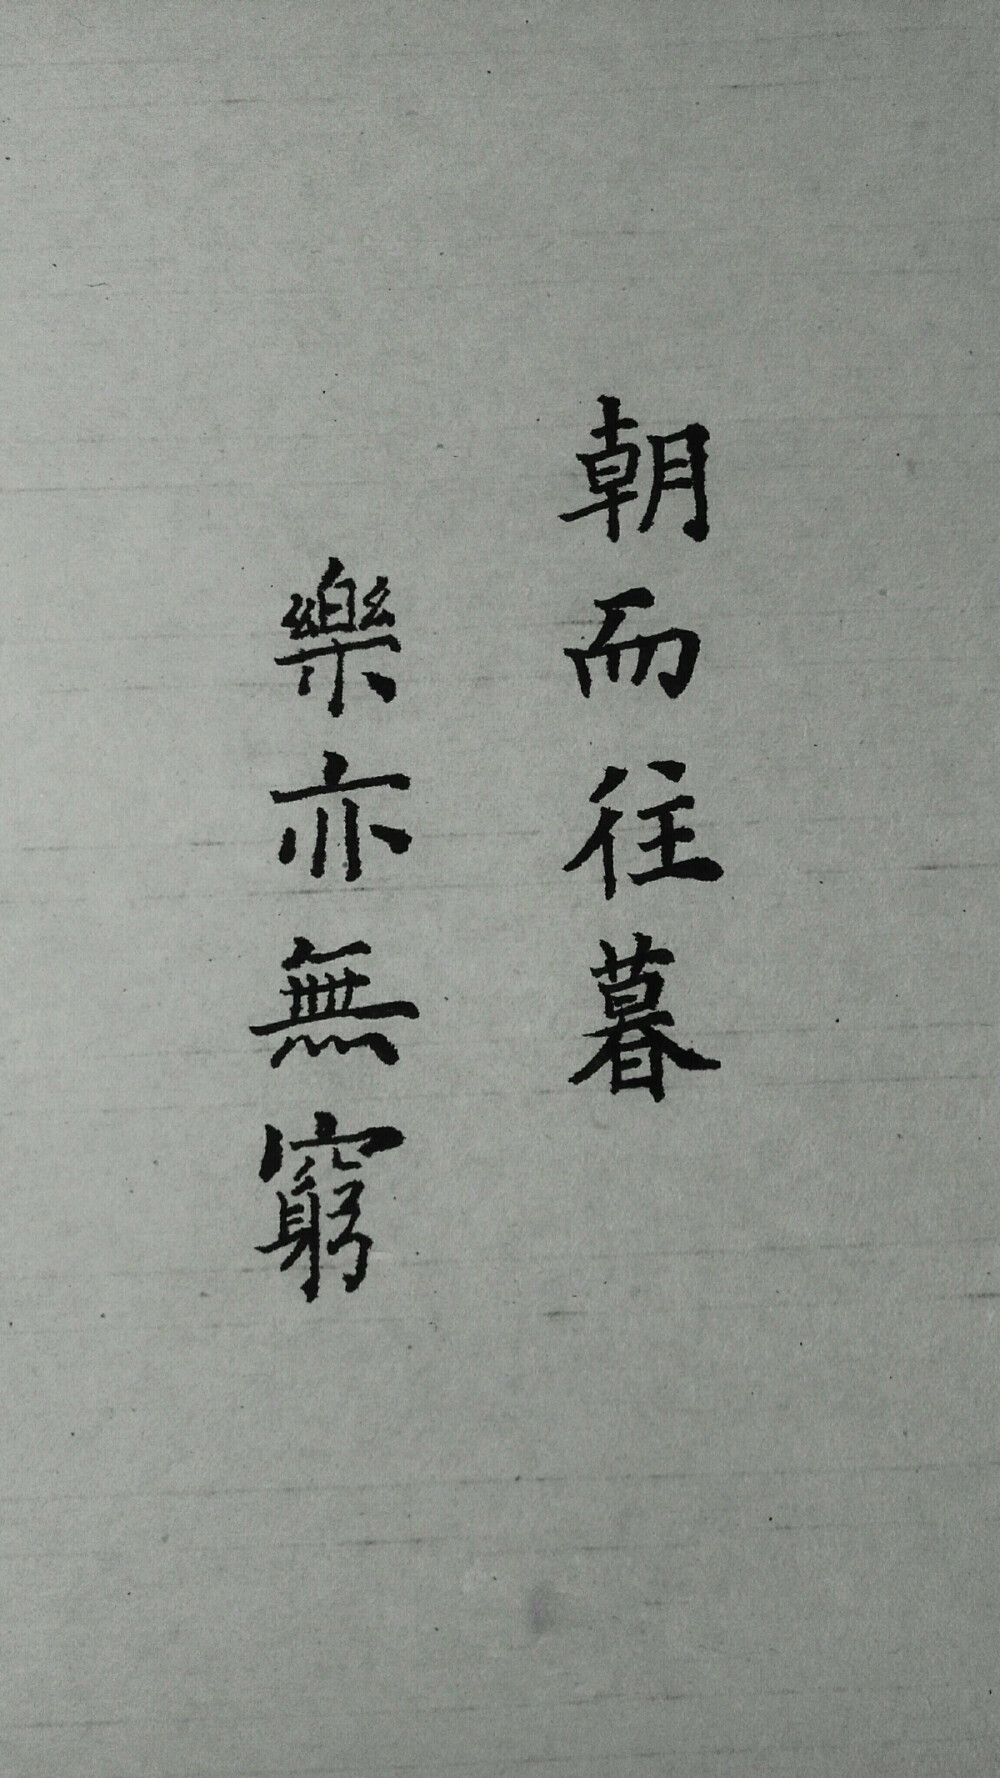 朝而往暮
樂亦無窮